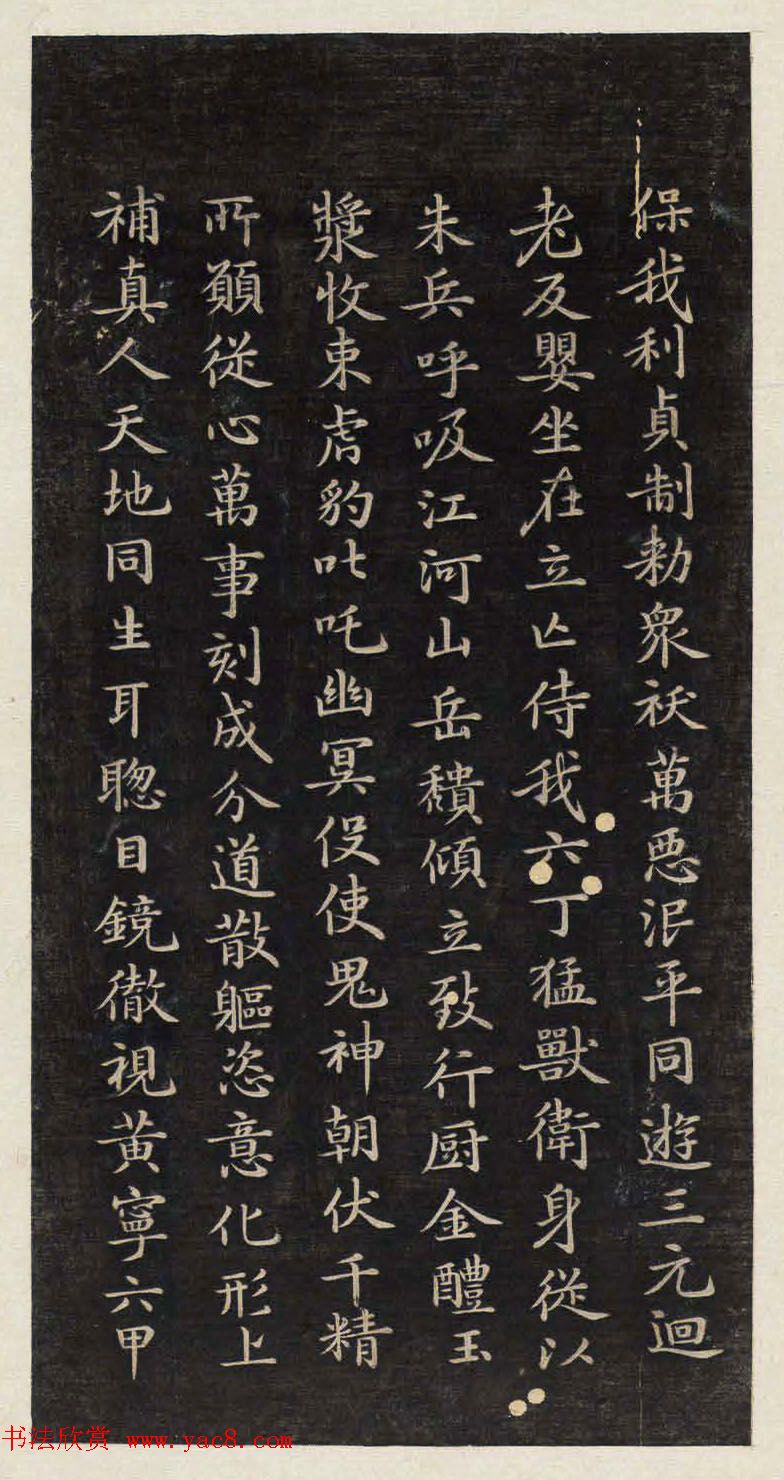 保我利貞制勑衆祅萬惡泯平同遊三元迴
老反嬰坐在立亾侍我六丁猛獸衛身從以
朱兵呼吸江河山岳穨傾立致行厨金醴玉
漿收束虎豹叱吒幽冥役使鬼神朝伏千精
所願從心萬事刻成分道散軀恣意化形上
補真人天地同生耳聰目鏡徹視黄寧六甲
书法欣赏 www.yac8.com